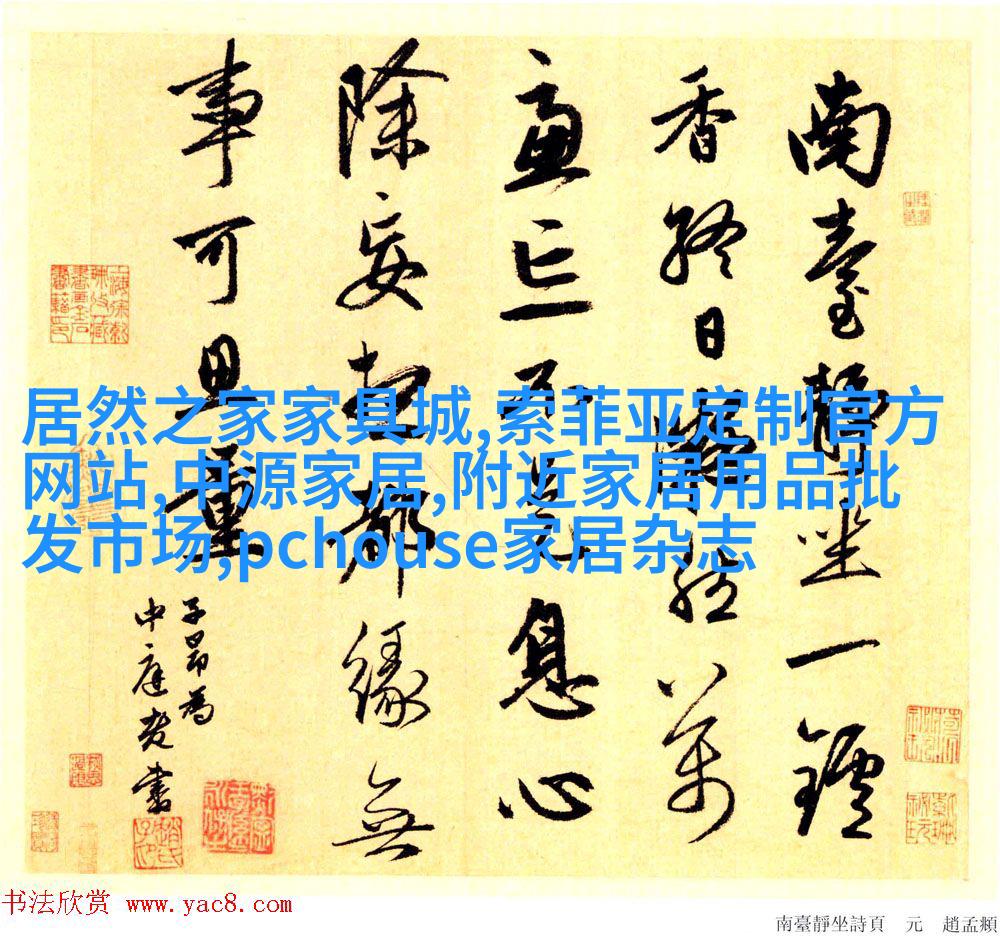 南臺靜坐一鑪
香終日凝然萬
慮亡不是息心
除妄想都緣無
事可思量
子昂為
中庭老書
居然之家家具城,索菲亚定制官方
网站,中源家居,附近家居用品批
发市场,pchouse家居杂志
书法欣赏 www.yac8.com
南臺靜坐詩頁 元 趙孟頫